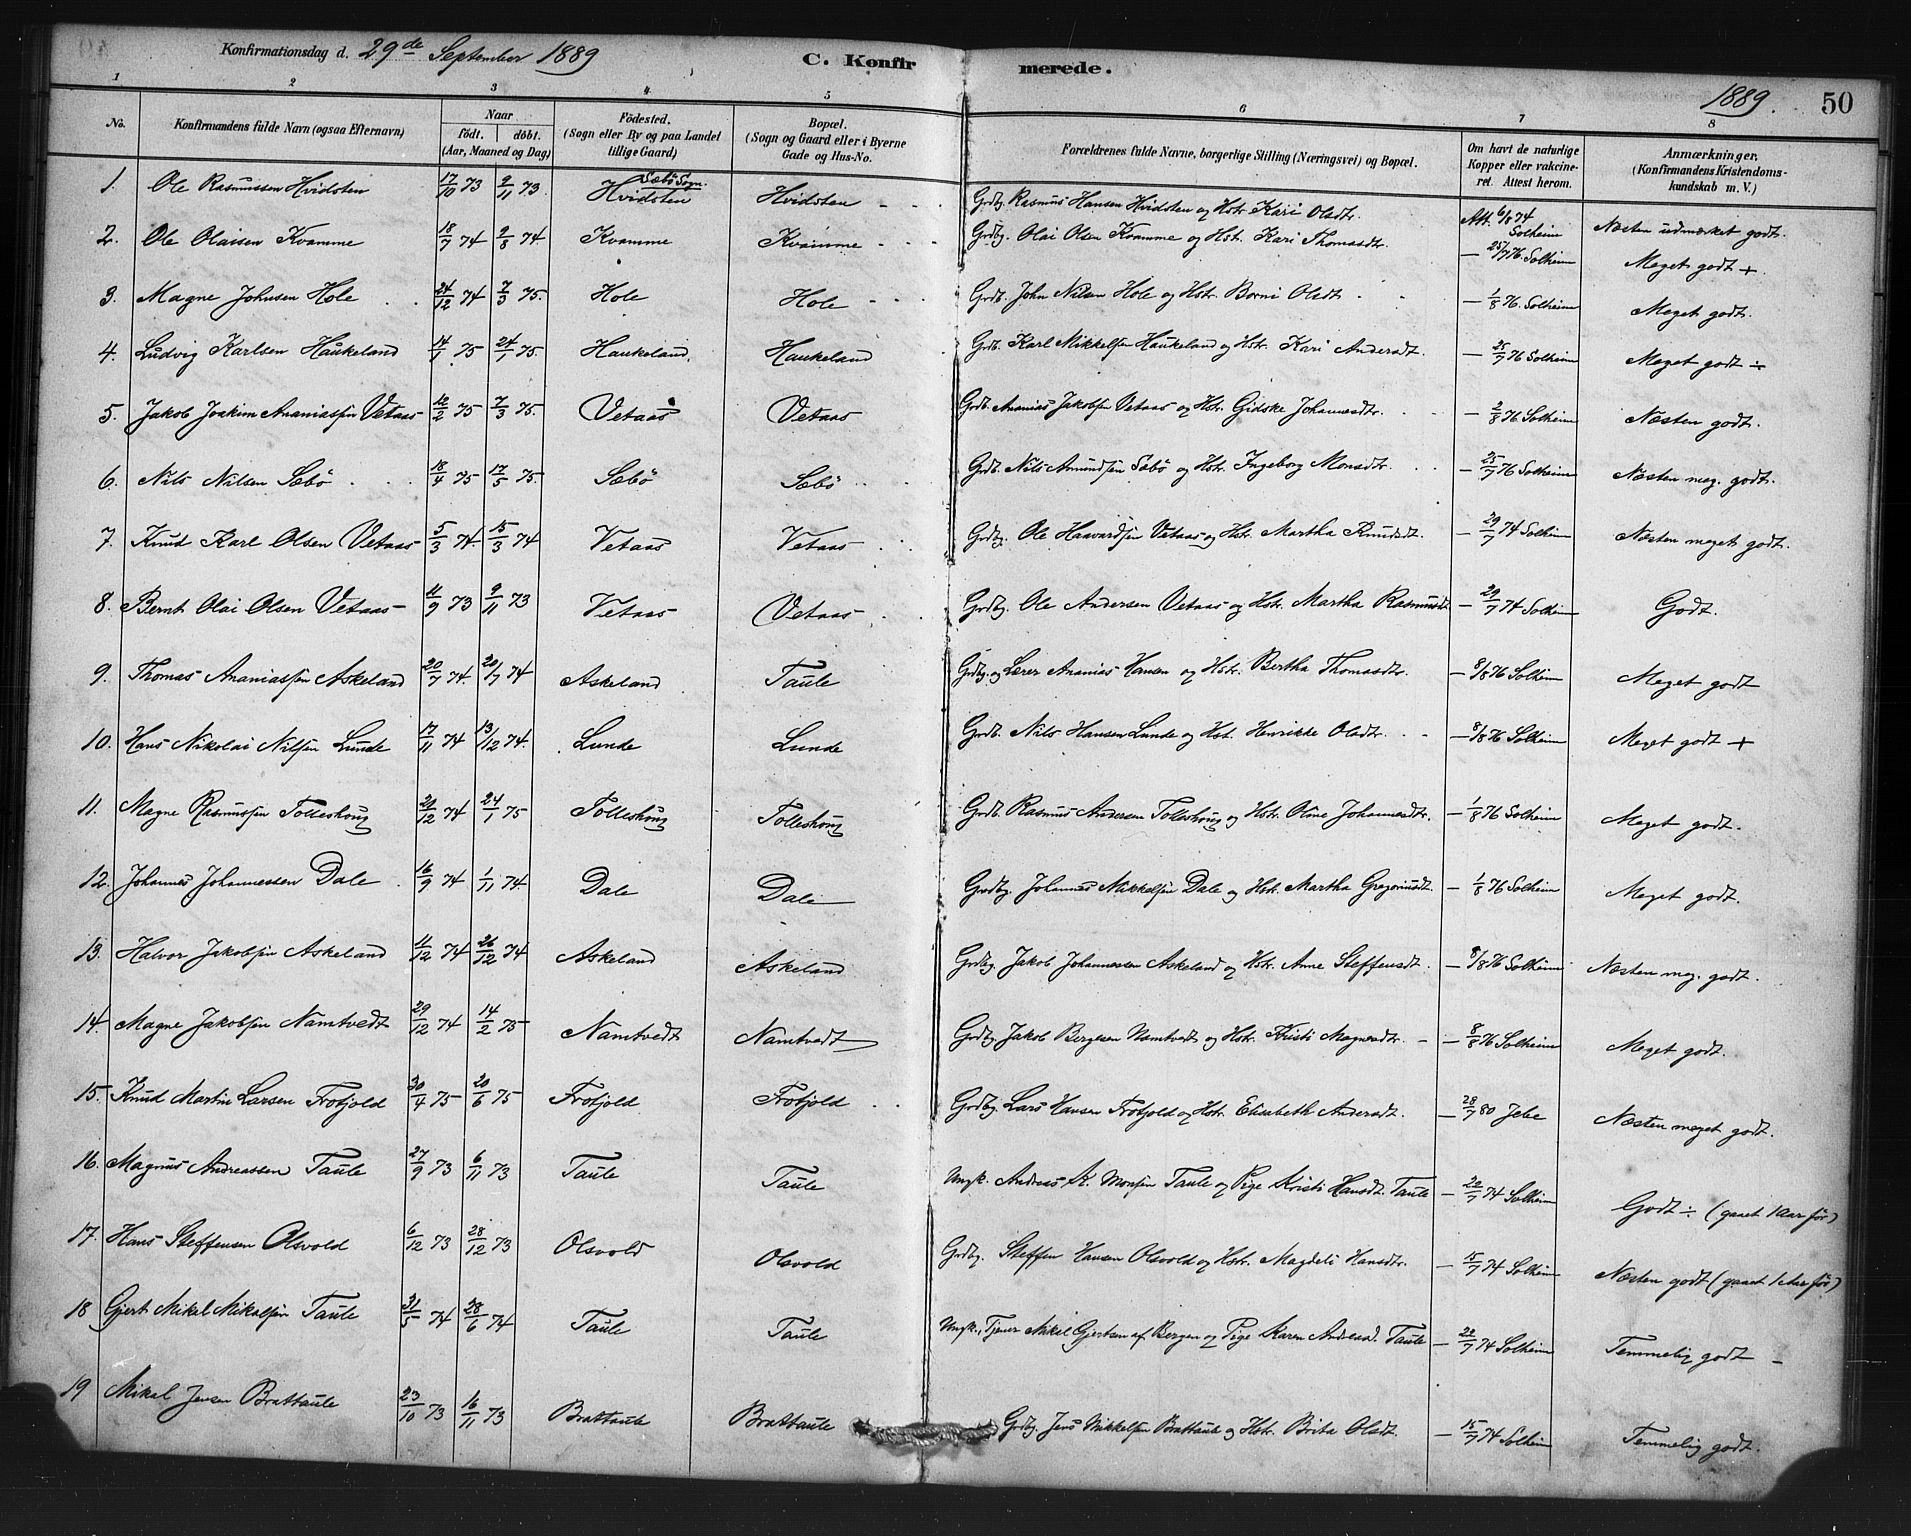 Konfirmationsdag d. 29de September 1889
C. Konfirmerede.
1889. 50
1 2 3 4 5 6 7 8
No. Konfirmandens fulde Navn (ogsaa Efternavn) Naar født. døbt. (Aar, Maaned og Dag) Fødested. (Sogn eller By og paa Landet tillige Gaard) Bopæl. (Sogn og Gaard eller i Byerne Gade og Hus-No. Forældrenes fulde Navne, borgerlige Stilling (Næringsvei) og Bopæl. Om havt de naturlige Kopper eller vakcineret. Attest herom. Anmærkninger. (Konfirmandens Kristendomskundskab m. V.)
1. Ole Rasmussen Hvidsten 17/10 73 9/11 73. Sæbø Sogn. Hvidsten Hvidsten Grdbg. Rasmus Hansen Hvidsten og Hstr. Kari Olsdtr. Att. 6/8 74 Solheim Næsten udmærket godt.
2. Ole Olaisen Kvamme 18/7 74 9/8 74 Kvamme Kvamme Grdbg. Olai Olsen Kvamme og Hstr. Kari Thomasdtr. — 25/7 76 Solheim Meget godt +
3. Magne Johnsen Hole 24/12 74 7/3 75. Hole Hole Grdb. John Nilsen Hole og Hstr. Borni Olsdt. — 1/8 76. Solheim Meget godt.
4. Ludvig Karlsen Haukeland 14/1 75 24/1 75. Haukeland. Haukeland Grdb. Karl Mikkelsen Haukeland og Hstr. Kari Andersdt. — 25/7 76 Solheim Meget godt ÷
5. Jakob Joakim Ananiassen Vetaas 10/2 75 7/3 75. Vetaas Vetaas Grdb. Ananias Jakobsen Vetaas og Hstr. Gidske Johannesdtr. — 2/8 76 Solheim Næsten godt.
6. Nils Nilsen Sæbø 18/4 75 17/5 75. Sæbø Sæbø Grdb. Nils Amundsen Sæbø og Hstr. Ingeborg Monsdtr. — 25/7 76 Solheim Næsten meg. godt.
7. Knud Karl Olsen Vetaas 5/3 74. 15/3 74 Vetaas Vetaas Grdbg. Ole Haavardsen Vetaas og Hstr. Martha Knudsdt. — 29/7 74 Solheim Næsten meget godt.
8. Bernt Olai Olsen Vetaas 11/9 73 9/11 73 Vetaas Vetaas Grdbg. Ole Andersen Vetaas og Hstr. Martha Rasmusdt. — 29/7 74 Solheim Godt.
9. Thomas Ananiassen Askeland 20/7 74. 20/7 74 Askeland Taule Grdbg. og Lærer Ananias Hansen og Hstr. Bertha Thomasdtr. — 8/8 76 Solheim Meget godt
10. Hans Nikolai Nilsen Lunde 17/11 74 13/12 74. Lunde Lunde Grdb. Nils Hansen Lunde og Hst. Henrikke Olsdtr. — 8/8 76 Solheim Meget godt +
11. Magne Rasmussen Tolleshoug 29/12 74 24/1 75 Tolleshoug Tolleshoug Grdb. Rasmus Andersen Tolleshoug og Hstr. Oline Johannesdtr. — 1/8 76 Solheim Meget godt.
12. Johannes Johannessen Dale 16/9 74 1/11 74 Dale Dale Grdbg. Johannes Mikkelsen Dale og Hstr. Martha Gregoriusdt. — 1/8 76 Solheim Meget godt.
13. Halvor Jakobsen Askeland 11/12 74 26/12 74 Askeland Askeland Grdbg. Jakob Johannessen Askeland og Hstr. Anne Steffensdt. — 8/8 76 Solheim Næsten meg. godt.
14. Magne Jakobsen Namtvedt 29/12 74 14/2 75 Namtvedt Namtvedt Grdbg. Jakob Bergesen Namtvedt og Hstr. Kristi Magnesdtr. — 8/8 76 Solheim Meget godt.
15. Knud Martin Larsen Frotjold 30/4 75 20/6 75 Frotjold Frotjold Grdbg. Lars Hansen Frotjold og Hstr. Elisabeth Andersdt. — 28/7 80 Jebe Næsten meget godt.
16. Magnus Andreassen Taule 27/9 73 6/11 73 Taule Taule Ungk. Andreas K. Monsen Taule og Pige Kristi Hansdt. Taule — 22/7 74 Solheim Godt ÷ (gaaet 1 Aar før)
17. Hans Steffensen Olsvold 6/12 73 28/12 73 Olsvold Olsvold Grdbg. Steffen Hansen Olsvold og Hstr. Magdeli Hansdtr. — 15/7 74 Solheim Næsten godt (gaaet 1 Aar før)
18 Gjert Mikal Mikalsen Taule 31/5 74 28/6 74 Taule Taule Ungk., Tjener Mikal Gjertsen af Bergen og Pige Karen Andersd. Taule — 22/7 74 Solheim Temmelig godt –
19 Mikal Jensen Brattaule 23/10 73 16/11 73 Brattaule Brattaule Grdbg. Jens Mikkelsen Brattaule og Hstr. Brita Olsdt. — 15/7 74 Solheim Temmelig godt.